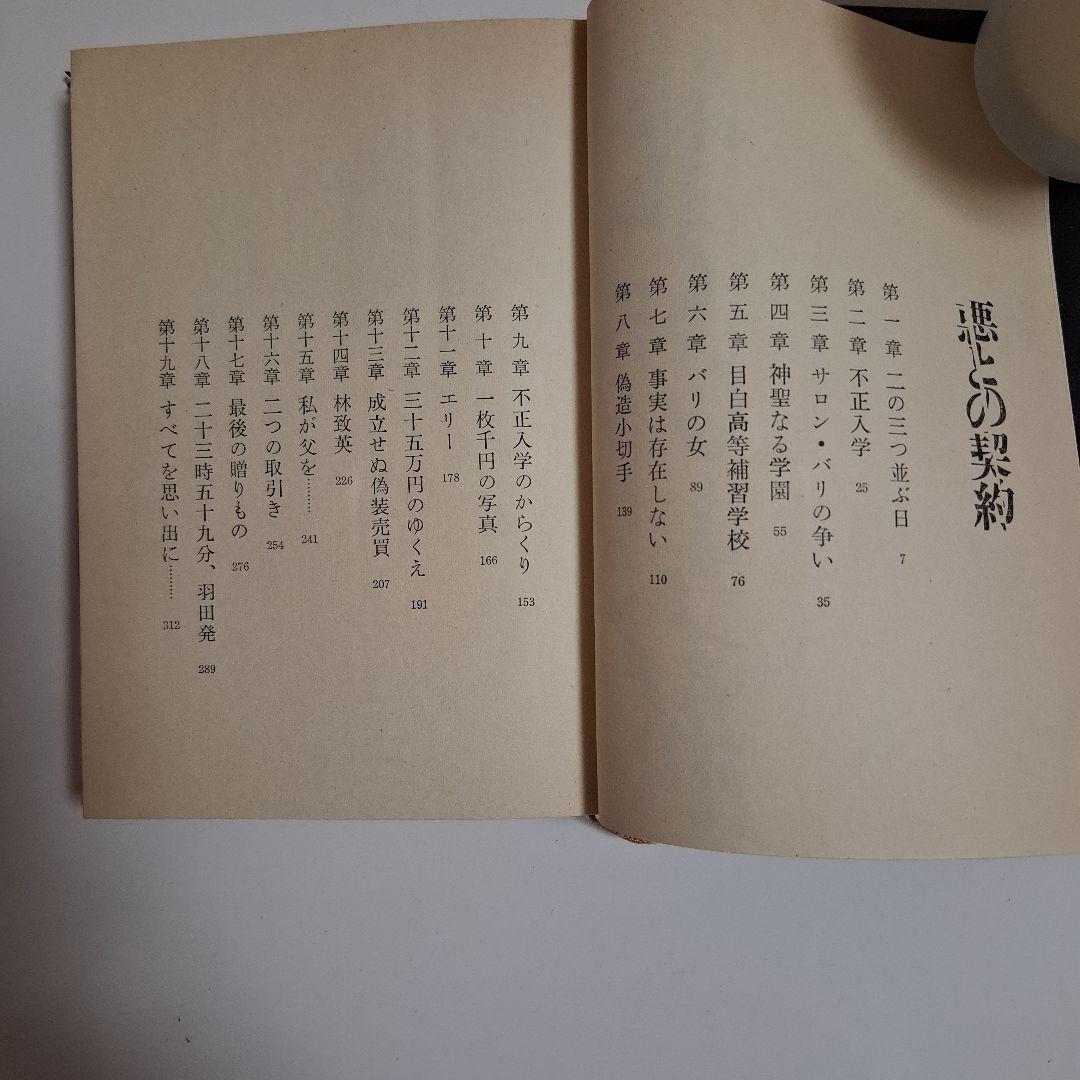 悪との契約
第一章 二の三つ並ぶ日 7
第二章 不正入学 25
第三章 サロン・バリの争い 35
第四章 神聖なる学園 55
第五章 目白高等補習学校 76
第六章 バリの女 89
第七章 事実は存在しない 110
第八章 偽造小切手 139
第九章 不正入学のからくり 153
第十章 一枚千円の写真 166
第十一章 エリー 178
第十二章 三十五万円のゆくえ 191
第十三章 成立せぬ偽装売買 207
第十四章 林致英 226
第十五章 私が父を……… 241
第十六章 二つの取引き 254
第十七章 最後の贈りもの 276
第十八章 二十三時五十九分、羽田発 289
第十九章 すべてを思い出に……… 312